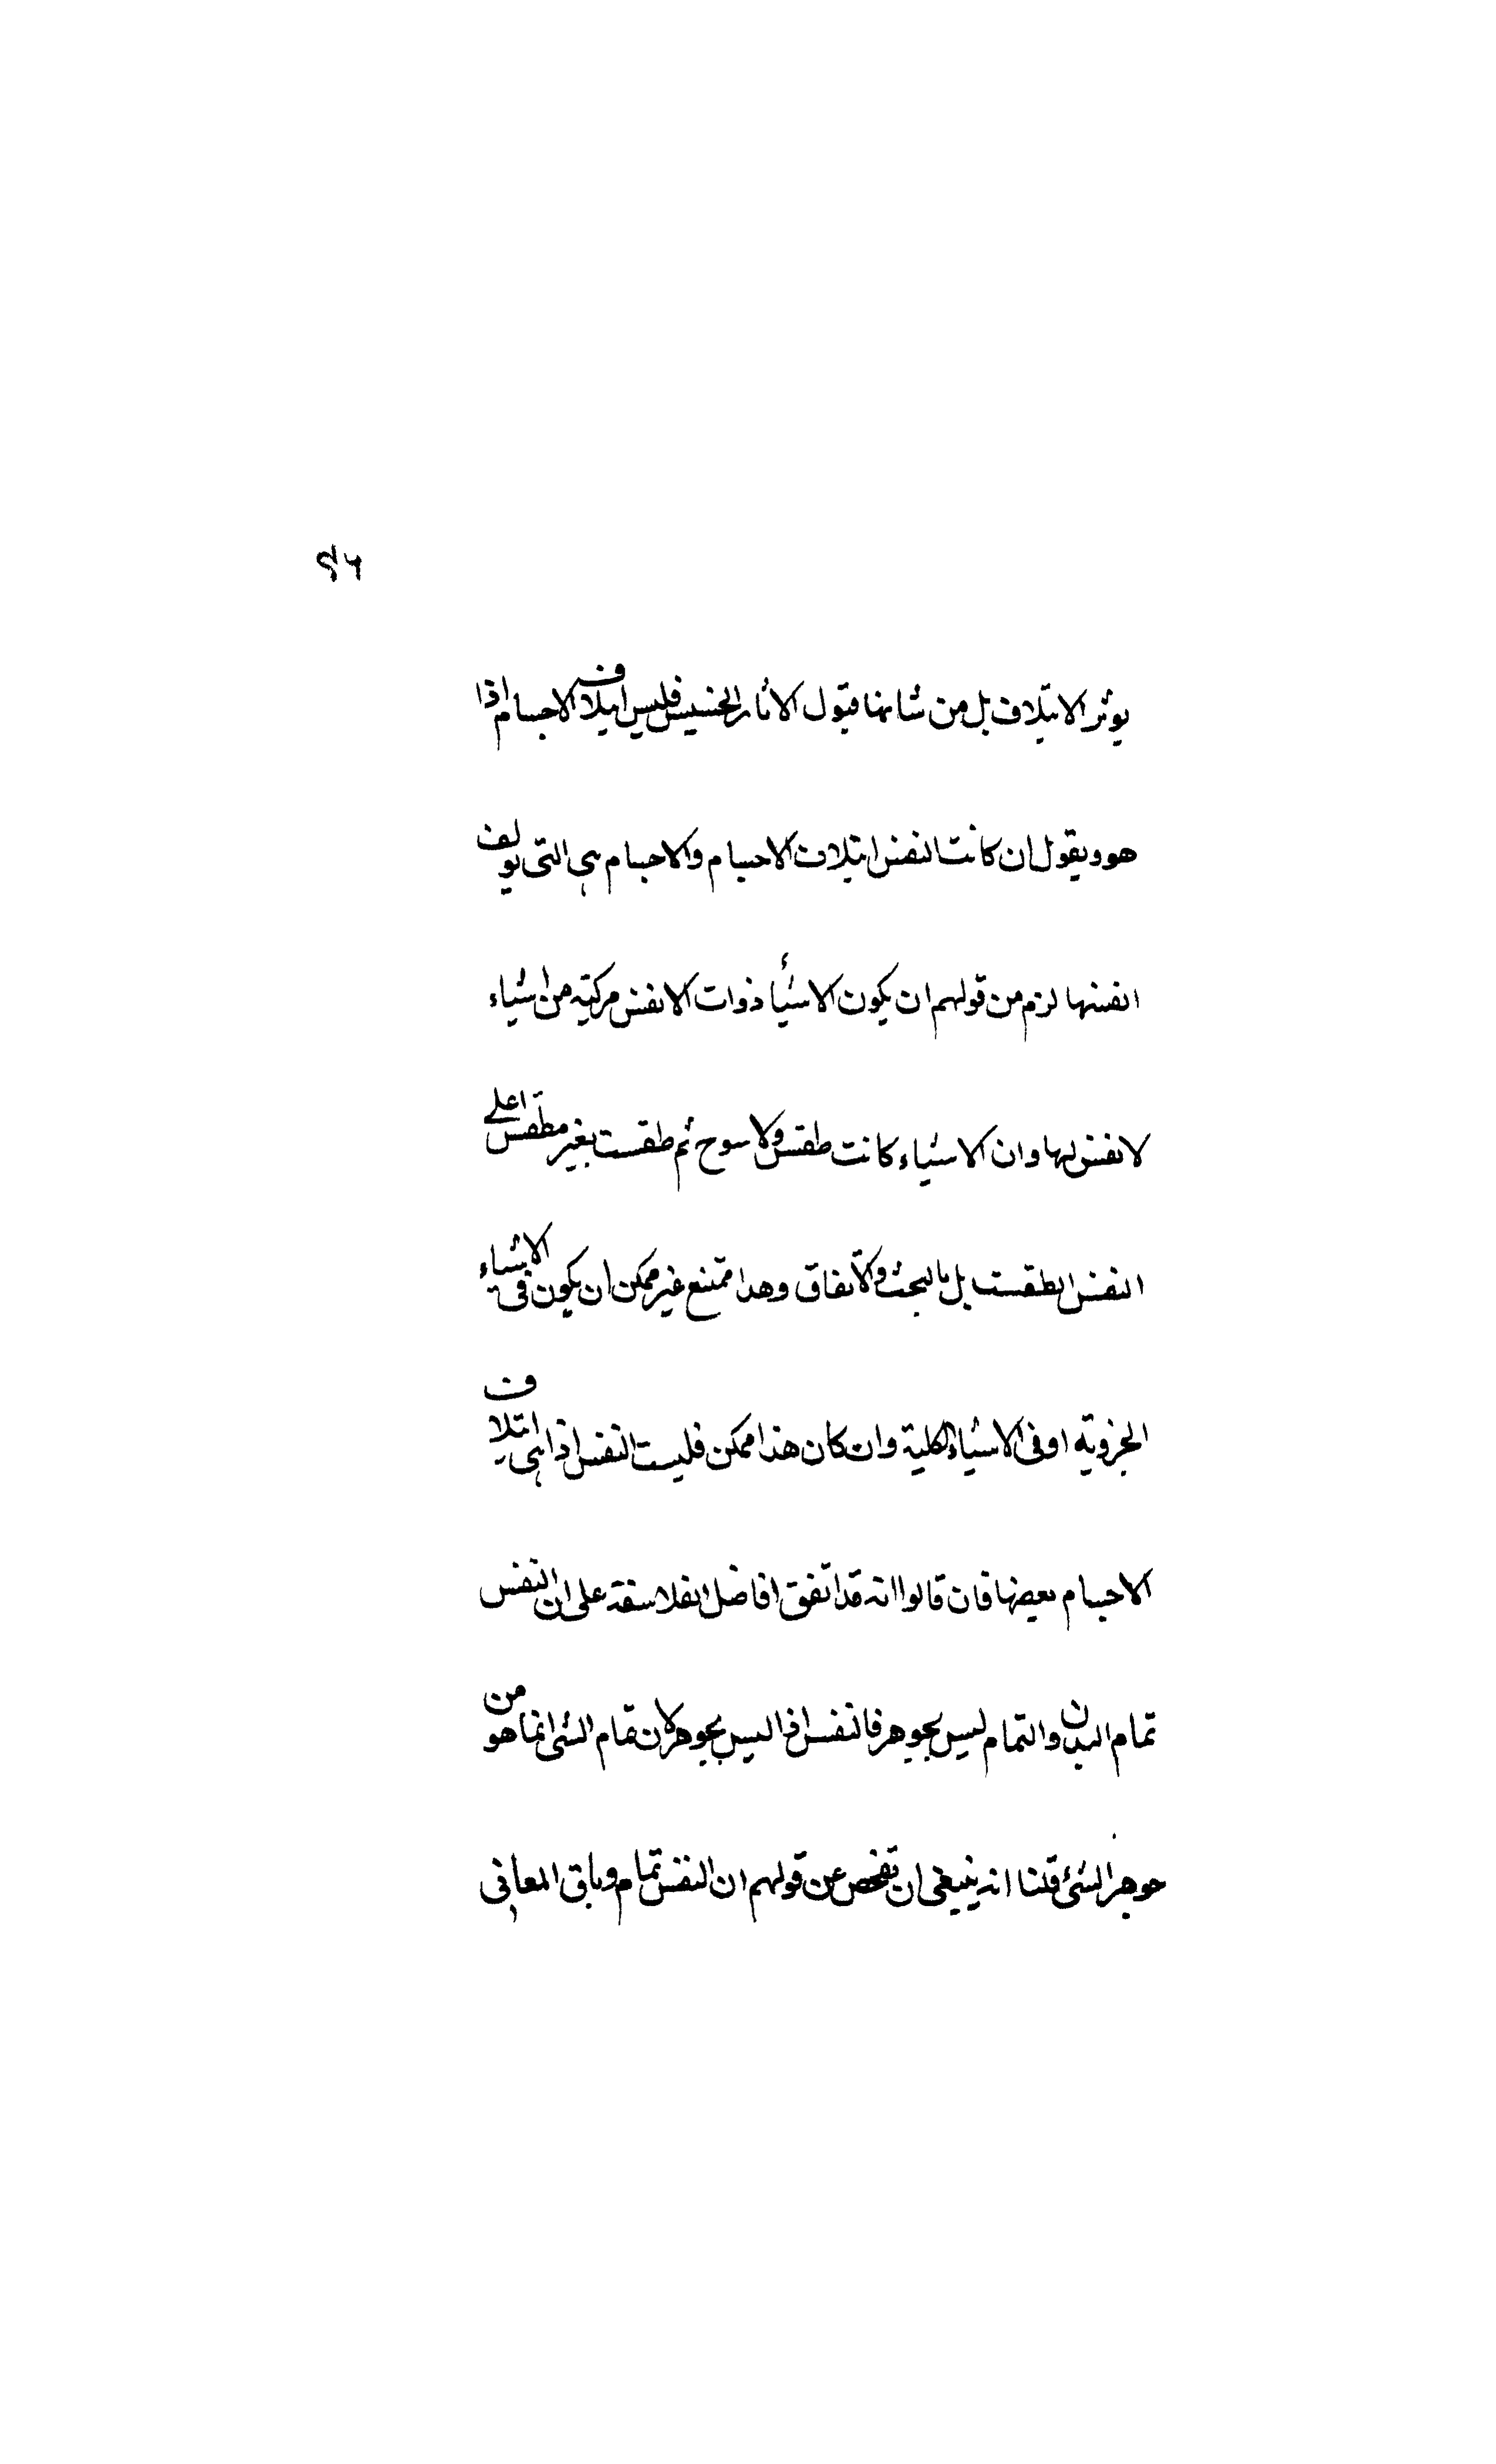 ٤٦
يوثر الايتلاف بل من شانها قبول الاثار الخسيس فليس ايتلاف الاجسام اذا
هو ويقول ان كانت النفس ايتلاف الاجسام والاجسام هى التى يولف
انفسها لزم من قولهم ان يكون الاشيأ ذوات الانفس مركبة من اشياء
لا نفس لها وان الاشياء كانت طقس ولا سوح ثم طقست بغير مطقس اعلے
النفس لطقست بل بالبحث والاتفاق وهذا ممتنع غير ممكن ان يكون فى الاشياء
الجزوية او فى الاشياء الكلية وان كان هذا ممكن فليست النفس اذا هى ايتلاف
الاجسام بعضها فان قالوا انه قد اتفق افاضل الفلاسفة على ان النفس
تمام البدن والتمام ليس بجوهر فالنفس اذا ليس بجوهر لان تمام الشى انما هو من
جوهر الشئ قلنا انه ينبغى ان تفحص عن قولهم ان النفس تمام وباق المعانى